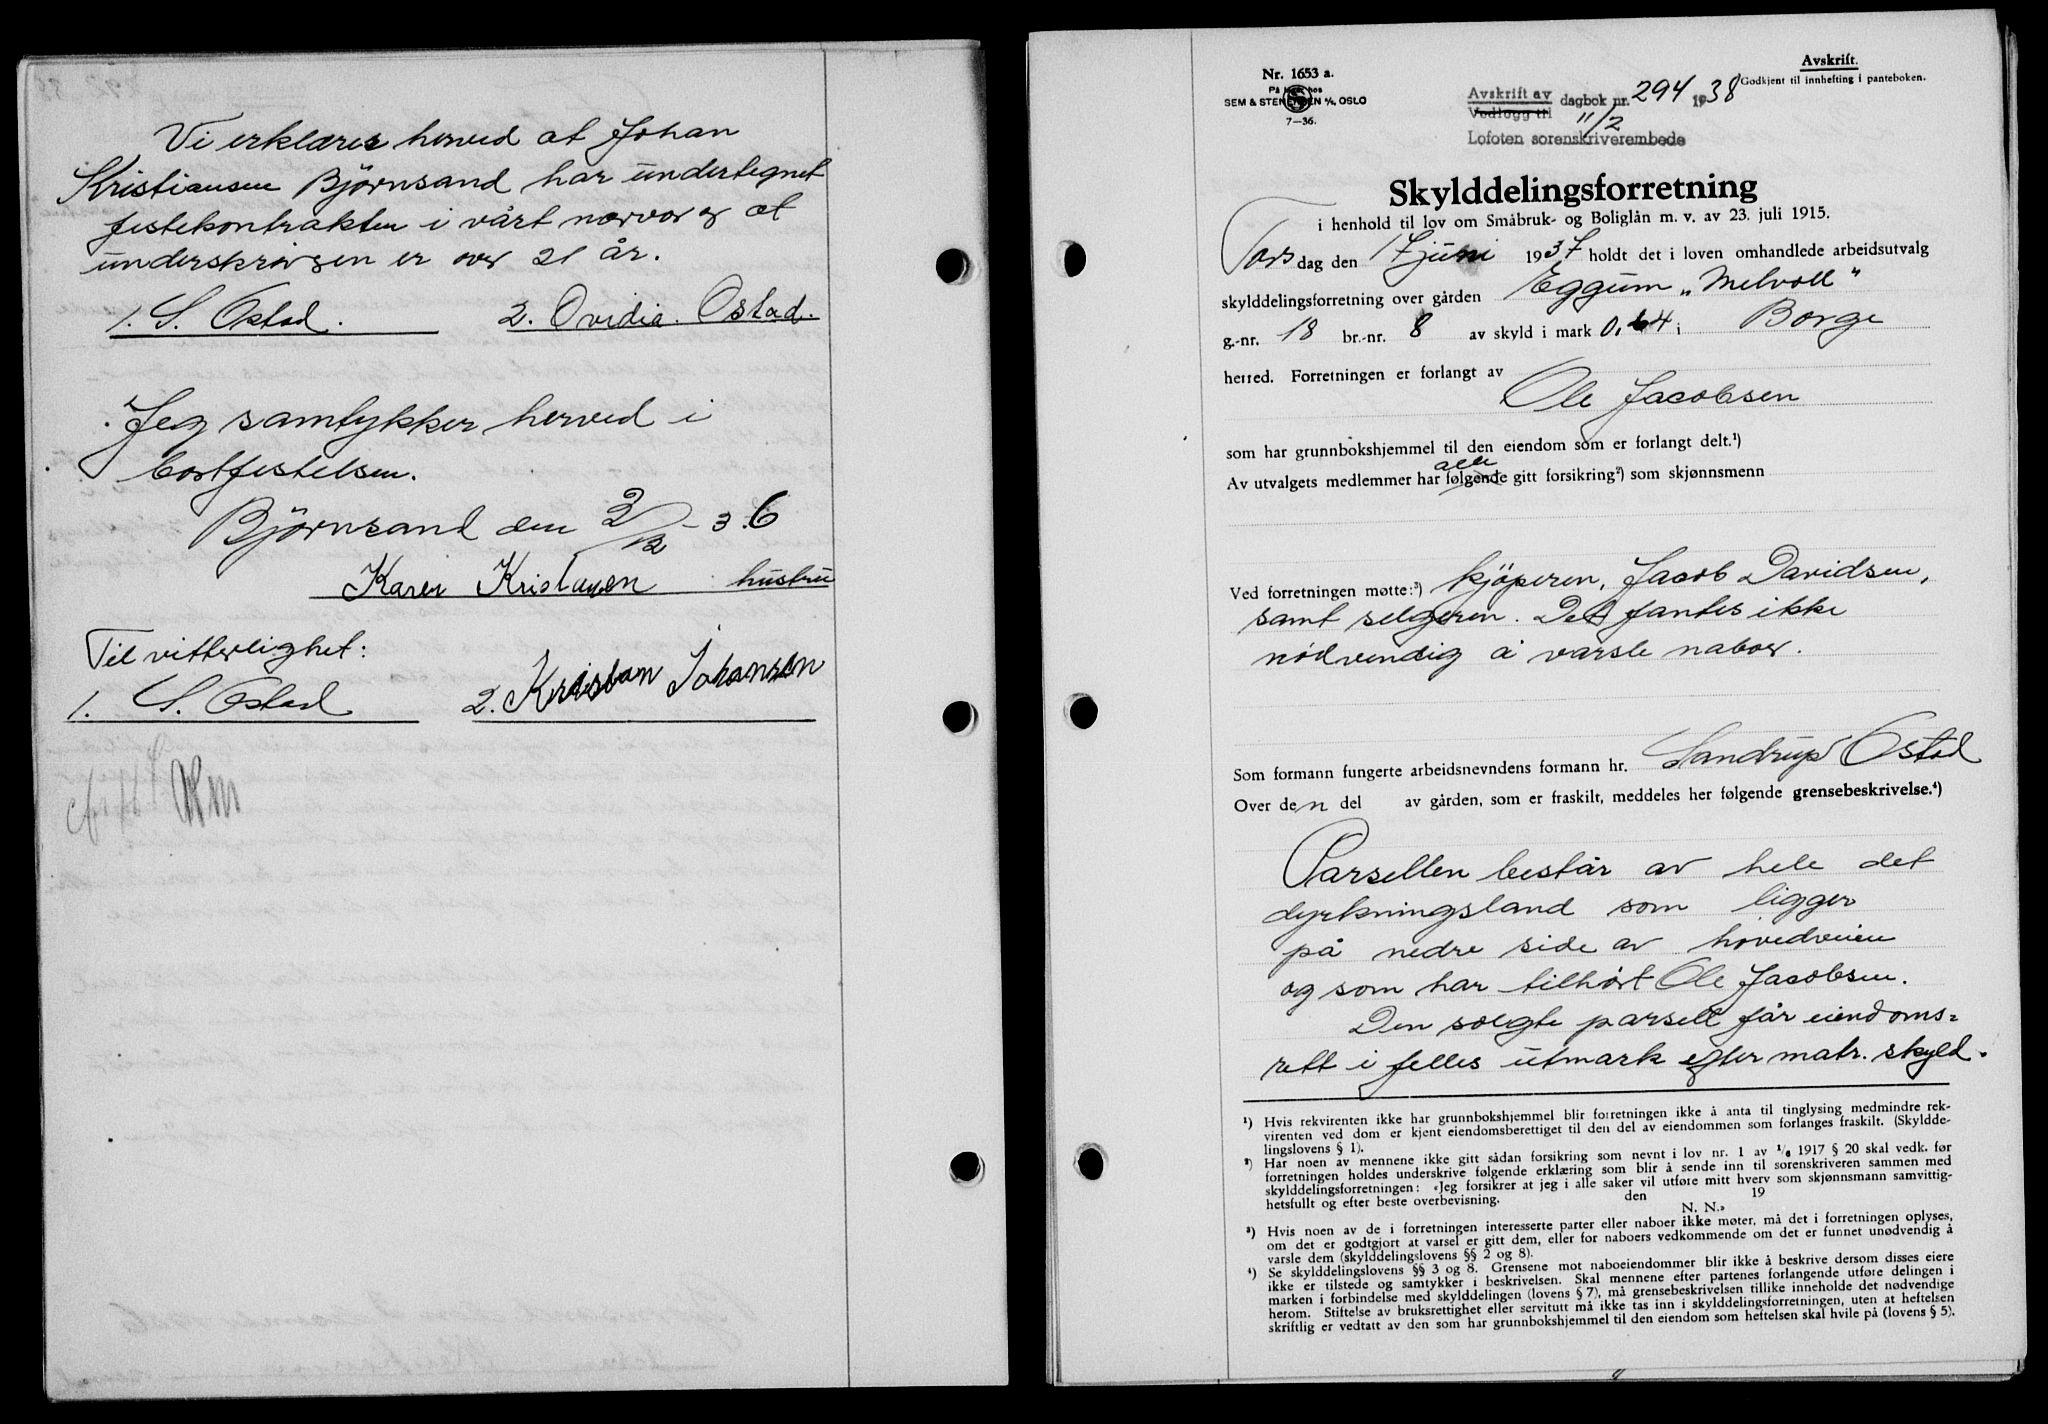 Vi erklærer herved at Johan
Kristiansen Björnsand har undertegnet
festekontrakten i vårt nærvær og at
underskriveren er over 21 år.
1. S. Ostad. 2. Ovidia. Ostad.
Jeg samtykker herved i
bortfestelsen.
Björnsand den 3/12 - 36
Karen Kristiansen hustru
Til vitterlighet:
1. S. Ostad 2. Kristian Johansen
Nr. 1653 a.
På lager hos
SEM & STENERSEN A/S, OSLO
7—36.
Avskrift.
Godkjent til innhefting i panteboken.
Avskrift av
Vedlegg til
dagbok nr. 294 1938
11/2
Lofoten sorenskriverembede
Skylddelingsforretning
i henhold til lov om Småbruk- og Boliglån m. v. av 23. juli 1915.
Torsdag den 17 juni 1937 holdt det i loven omhandlede arbeidsutvalg
skylddelingsforretning over gården Eggum „Melvoll"
g.-nr. 18 br.-nr. 8 av skyld i mark 0,64 i Borge
herred. Forretningen er forlangt av
Ole Jacobsen
som har grunnbokshjemmel til den eiendom som er forlangt delt.¹)
alle
Av utvalgets medlemmer har følgende gitt forsikring²) som skjønnsmenn
Ved forretningen møtte:³) kjöperen, Jacob Davidsen,
samt selgeren. Det fantes ikke
nödvendig å varsle naboer.
Som formann fungerte arbeidsnevndens formann hr. Sandrup Ostad
Over den del av gården, som er fraskilt, meddeles her følgende grensebeskrivelse.⁴)
Parsellen består av hele det
dyrkningsland som ligger
på nedre side av hovedveien
og som har tilhört Ole Jacobsen.
Den solgte parsell får eiendoms=
rett i felles utmark efter matr. skyld.
¹) Hvis rekvirenten ikke har grunnbokshjemmel blir forretningen ikke å anta til tinglysing medmindre rek-
virenten ved dom er kjent eiendomsberettiget til den del av eiendommen som forlanges fraskilt. (Skyldde-
lingslovens § 1).
²) Har noen av mennene ikke gitt sådan forsikring som nevnt i lov nr. 1 av 1/6 1917 § 20 skal vedk. før
forretningen holdes underskrive følgende erklæring som blir å sende inn til sorenskriveren sammen med
skylddelingsforretningen: «Jeg forsikrer at jeg i alle saker vil utføre mitt hverv som skjønnsmann samvittig-
hetsfullt og efter beste overbevisning. den 19
N. N.»
³) Hvis noen av de i forretningen interesserte parter eller naboer ikke møter, må det i forretningen oplyses,
om det er godtgjort at varsel er gitt dem, eller for naboers vedkommende om det er funnet unødvendig å
varsle dem (skylddelingslovens §§ 2 og 8).
⁴) Se skylddelingslovens §§ 3 og 8. Grensene mot naboeiendommer blir ikke å beskrive dersom disses eiere
ikke er tilstede og samtykker i beskrivelsen. Skal mennene efter partenes forlangende utføre delingen i
marken i forbindelse med skylddelingen (lovens § 7), må grensebeskrivelsen tillike inneholde det nødvendige
herom. Stiftelse av bruksrettighet eller servitutt må ikke tas inn i skylddelingsforretningen, uten at heftelsen
skriftlig er vedtatt av den som har grunnbokshjemmel til den eiendom som heftelsen skal hvile på (lovens § 5).